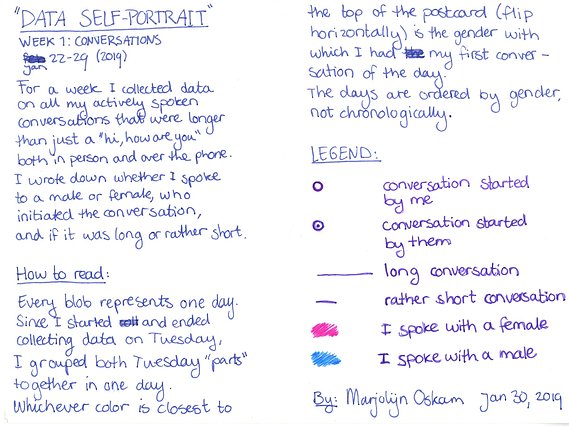 "DATA SELF-PORTRAIT"
WEEK 1: CONVERSATIONS
Jan 22-29 (2019)
For a week I collected data
on all my actively spoken
conversations that were longer
than just a "hi, how are you"
both in person and over the phone.
I wrote down whether I spoke
to a male or female, who
initiated the conversation,
and if it was long or rather short.
How to read:
Every blob represents one day.
Since I started and ended
collecting data on Tuesday,
I grouped both Tuesday "parts"
together in one day.
Whichever color is closest to
the top of the postcard (flip
horizontally) is the gender with
which I had my first conver-
sation of the day.
The days are ordered by gender,
not chronologically.
LEGEND:
conversation started
by me
conversation started
by them
long conversation
rather short conversation
I spoke with a female
I spoke with a male
By: Marjolijn Oskam Jan 30, 2019